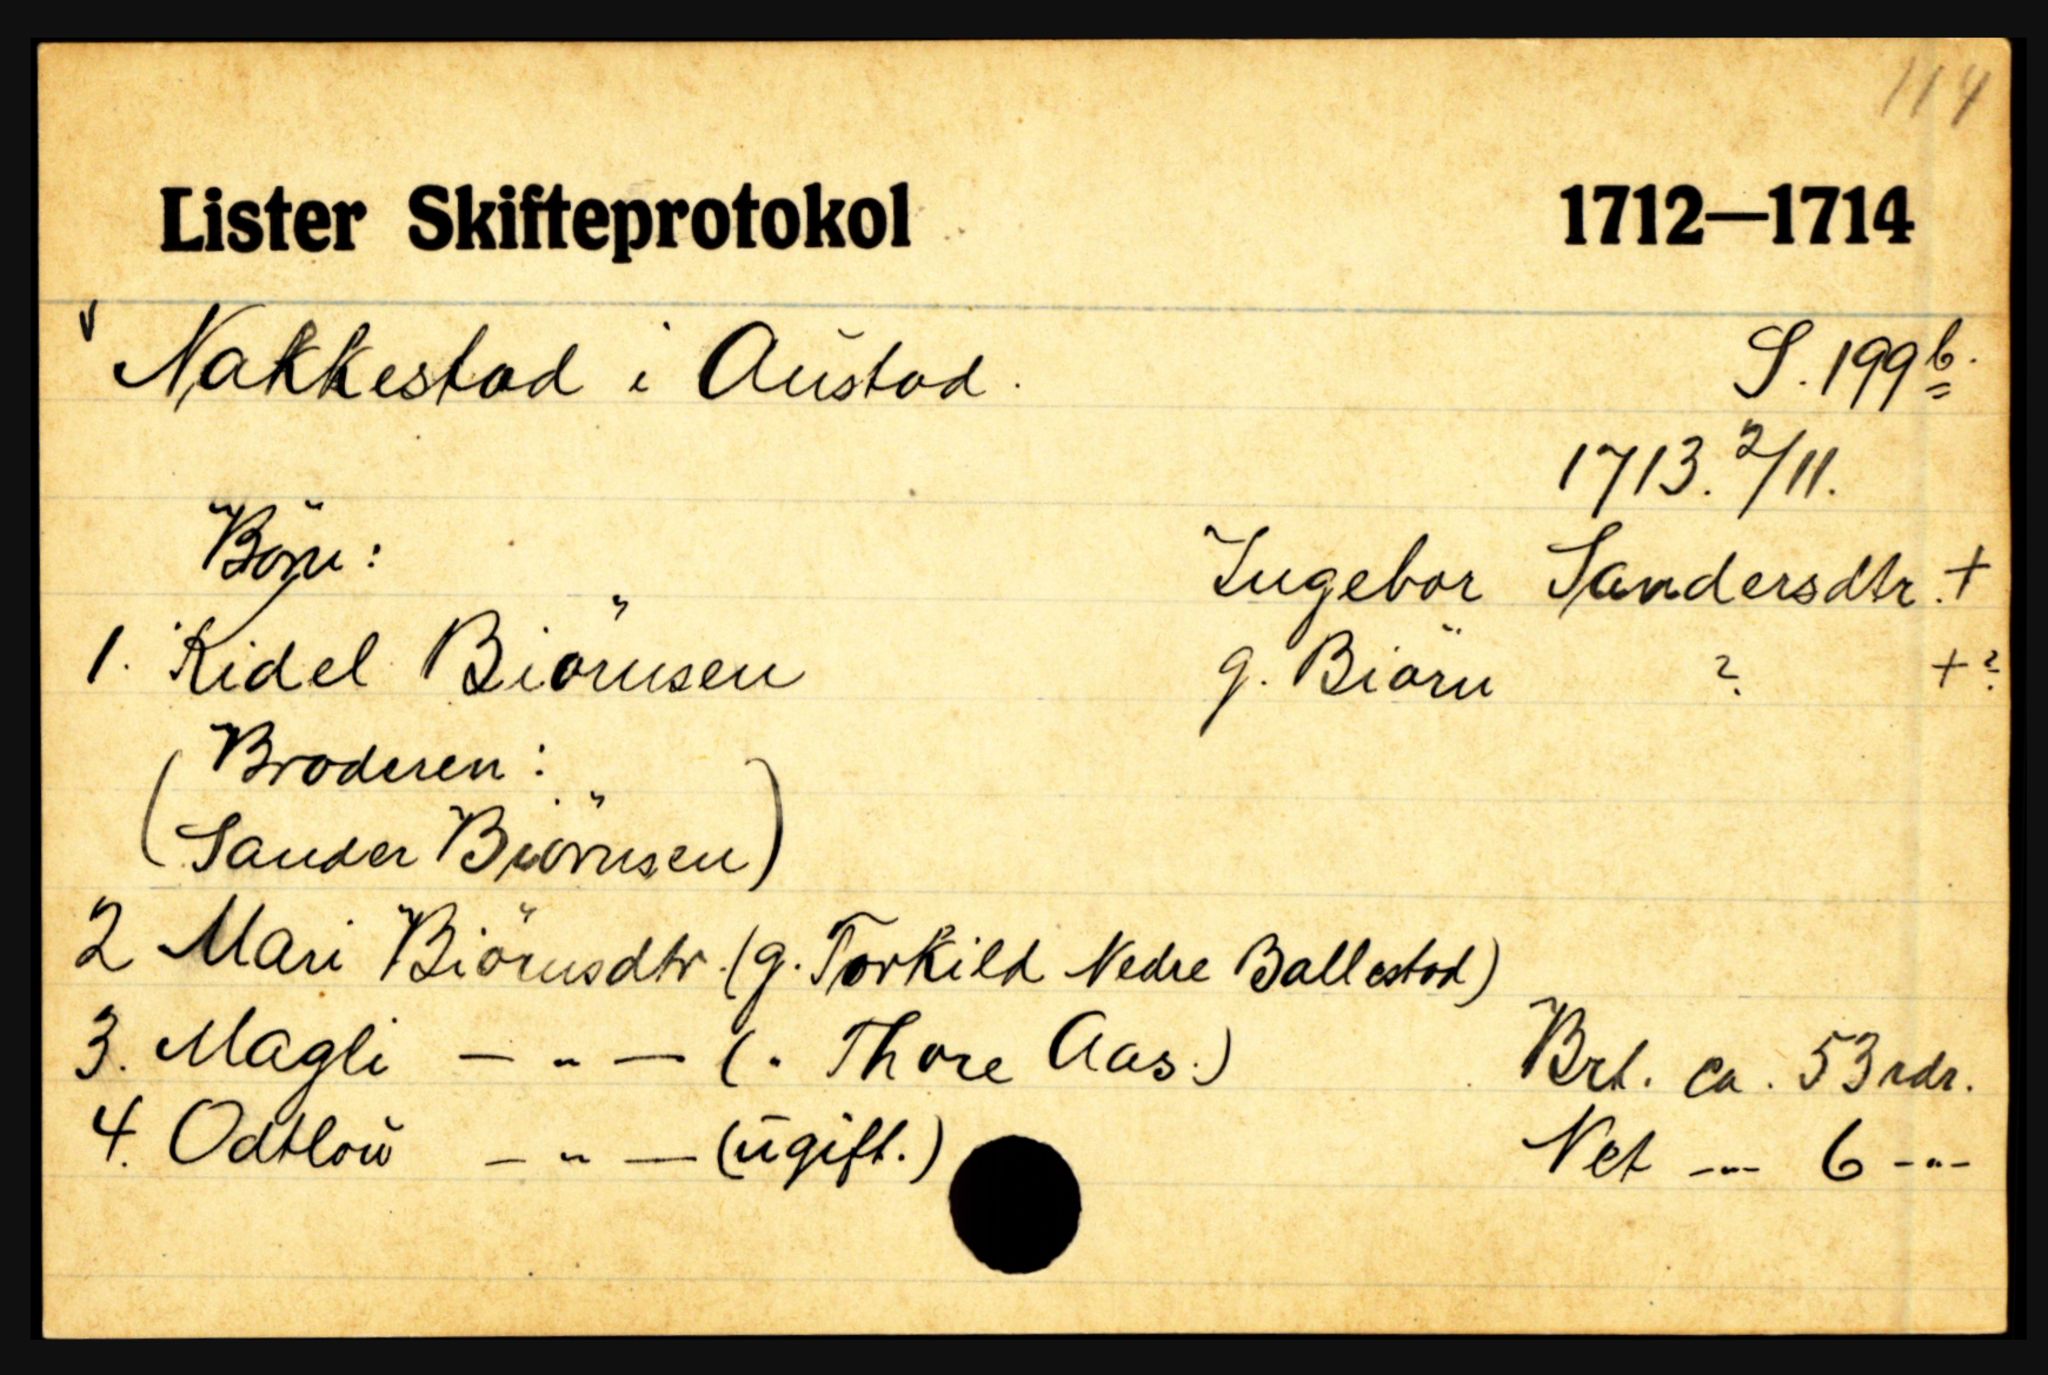 114
Lister Skifteprotokol 1712—1714
Nakkestad i Austad. S. 199 b.
1713. 2/11.
Börn: Ingebor Sandersdtr. +
1. Kidel Biörnsen g. Biörn ? +?
(Broderen:
Sander Biörnsen)
2 Mari Biörnsdtr. (g. Torkild Nedre Ballestad)
3. Magli — " — (" Thore Aas.) Brt. ca. 53 rdr.
4. Odtlou — " — (ugift.) Net -"- 6 -"-